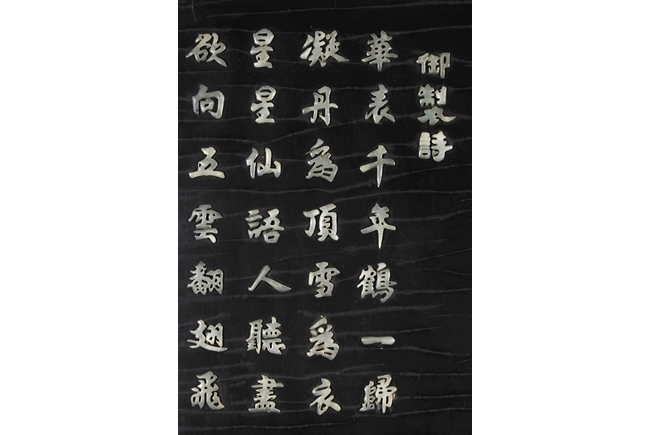 御製詩
華表千年鶴一歸
凝丹爲頂雪爲衣
星星仙語人聽盡
欲向五雲翻翅飛